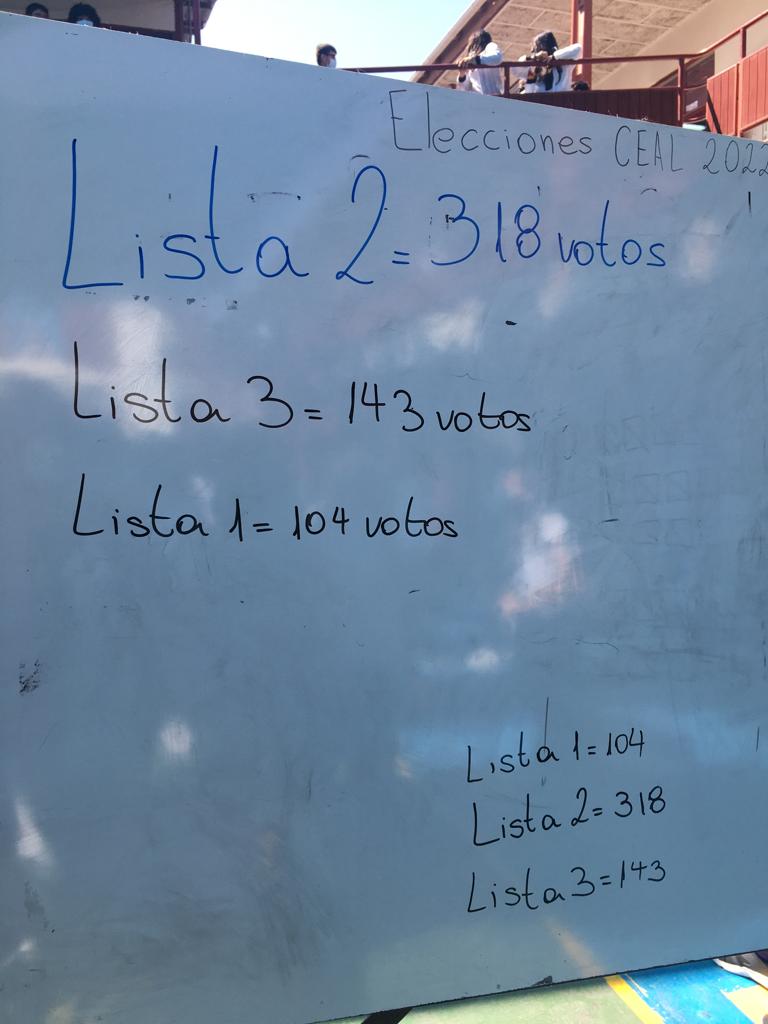 Elecciones CEAL 2022
Lista 2 = 318 votos
Lista 3 = 143 votos
Lista 1 = 104 votos
Lista 1 = 104
Lista 2 = 318
Lista 3 = 143